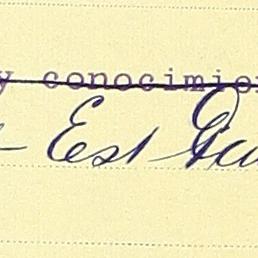 y conocimien
Est